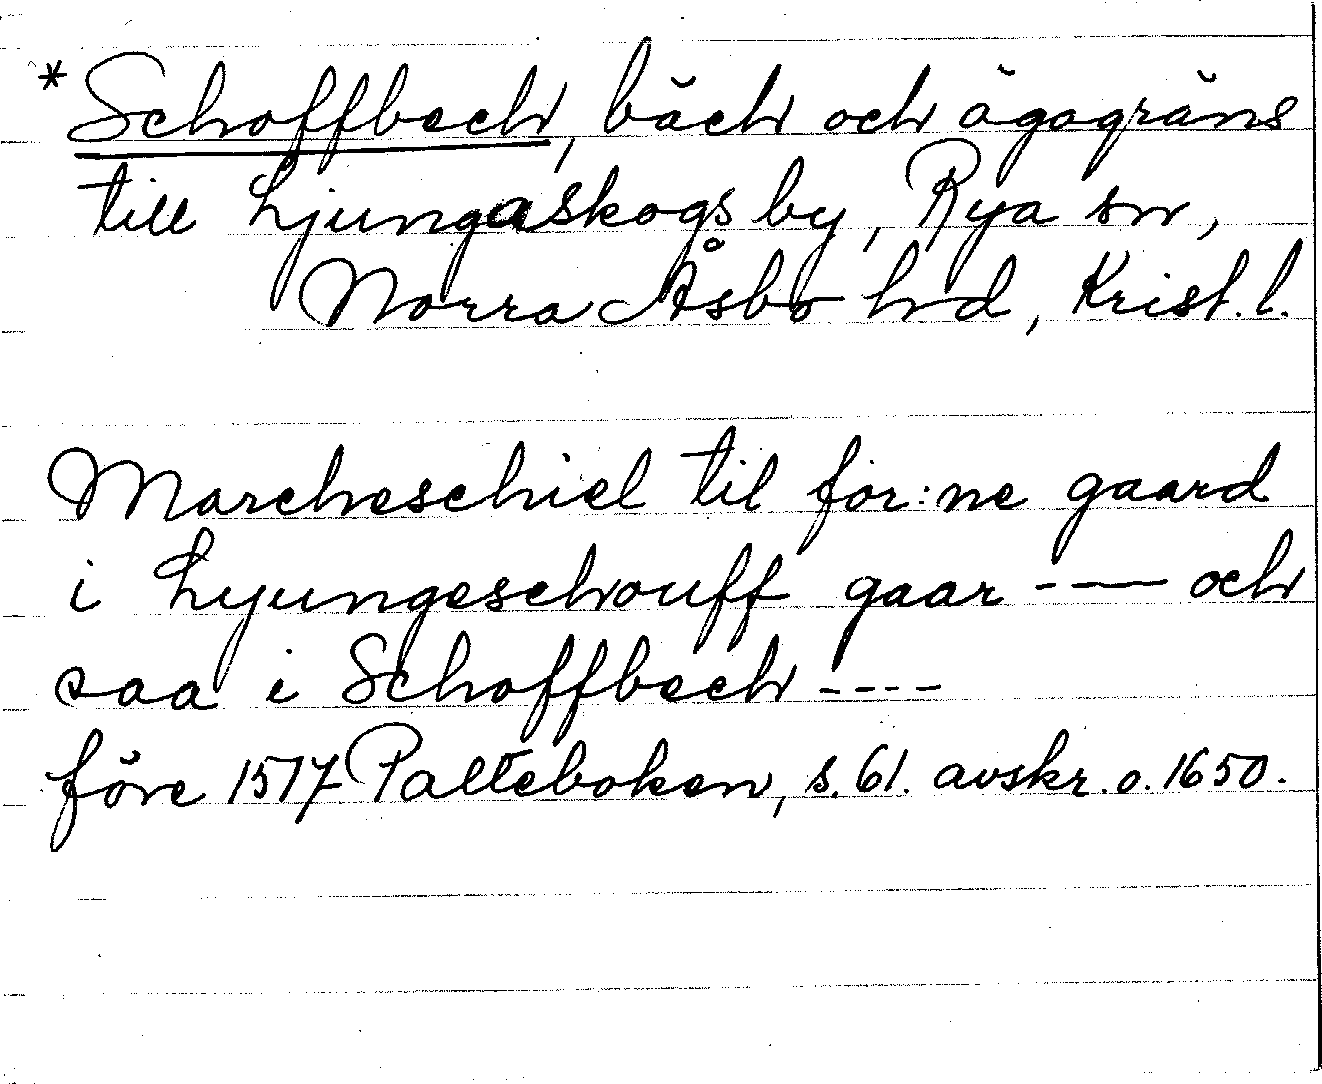 *Schoffbech, bäck och ägogräns
till Ljungaskogs by, Rya sn,
Norra Åsbo hd, Krist. l.
Marcheschiel til for:ne gaard
i Lyungeschouff gaar ---- och
saa i Schoffbech ----
före 1517 Palteboken, s. 61. avskr. o. 1650.